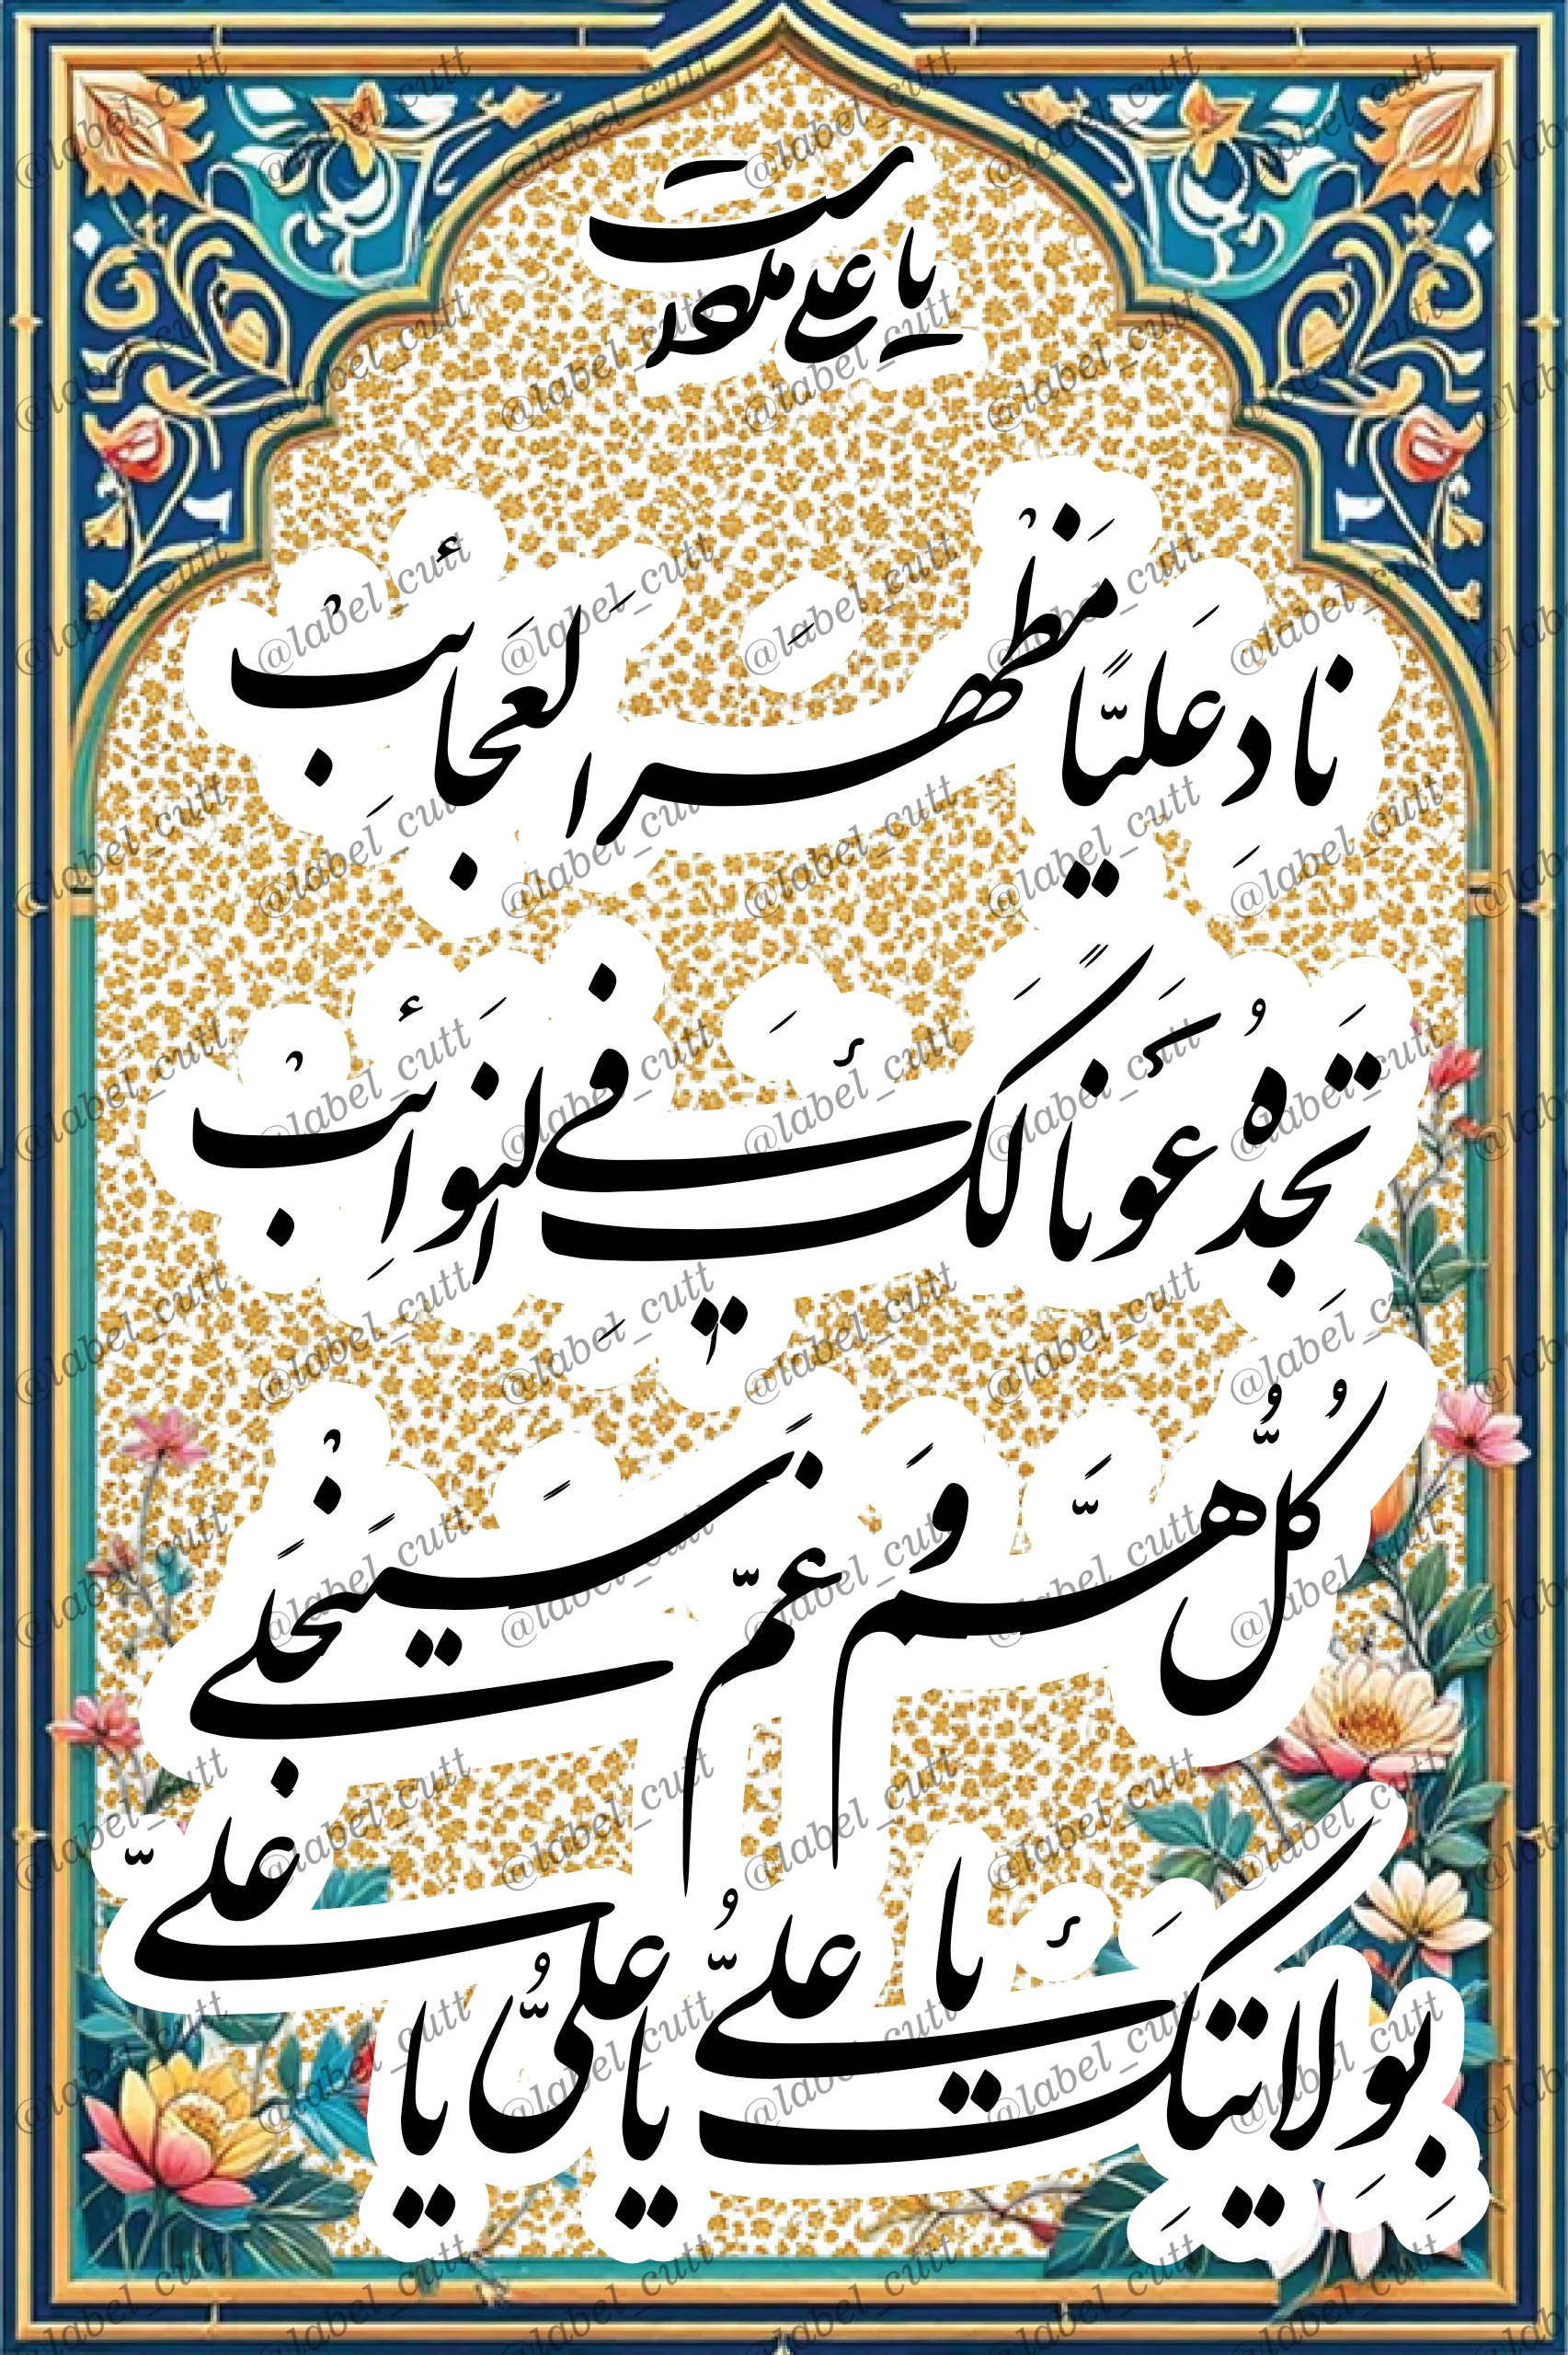 یا علی مددست
نادِ عَلیًّا مَظْهَرَ الْعَجائِبْ
تَجِدْهُ عَوْنًا لَکَ فِی النَّوائِبْ
کُلُّ هَمٍّ وَ غَمٍّ سَیَنْجَلی
بِوِلایَتِکَ یا عَلیُّ یا عَلیُّ یا عَلیّ
@label_cutt